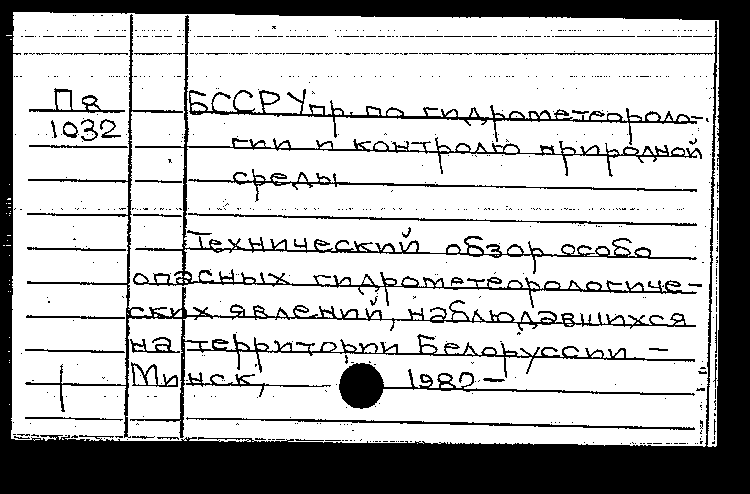 Пя БССР Упр. по гидрометеороло-
1032 гии и контролю природной
среды
Технический обзор особо
опасных гидрометеорологиче-
ских явлений, наблюдавшихся
на территории Белоруссии –
Минск, 1982 –